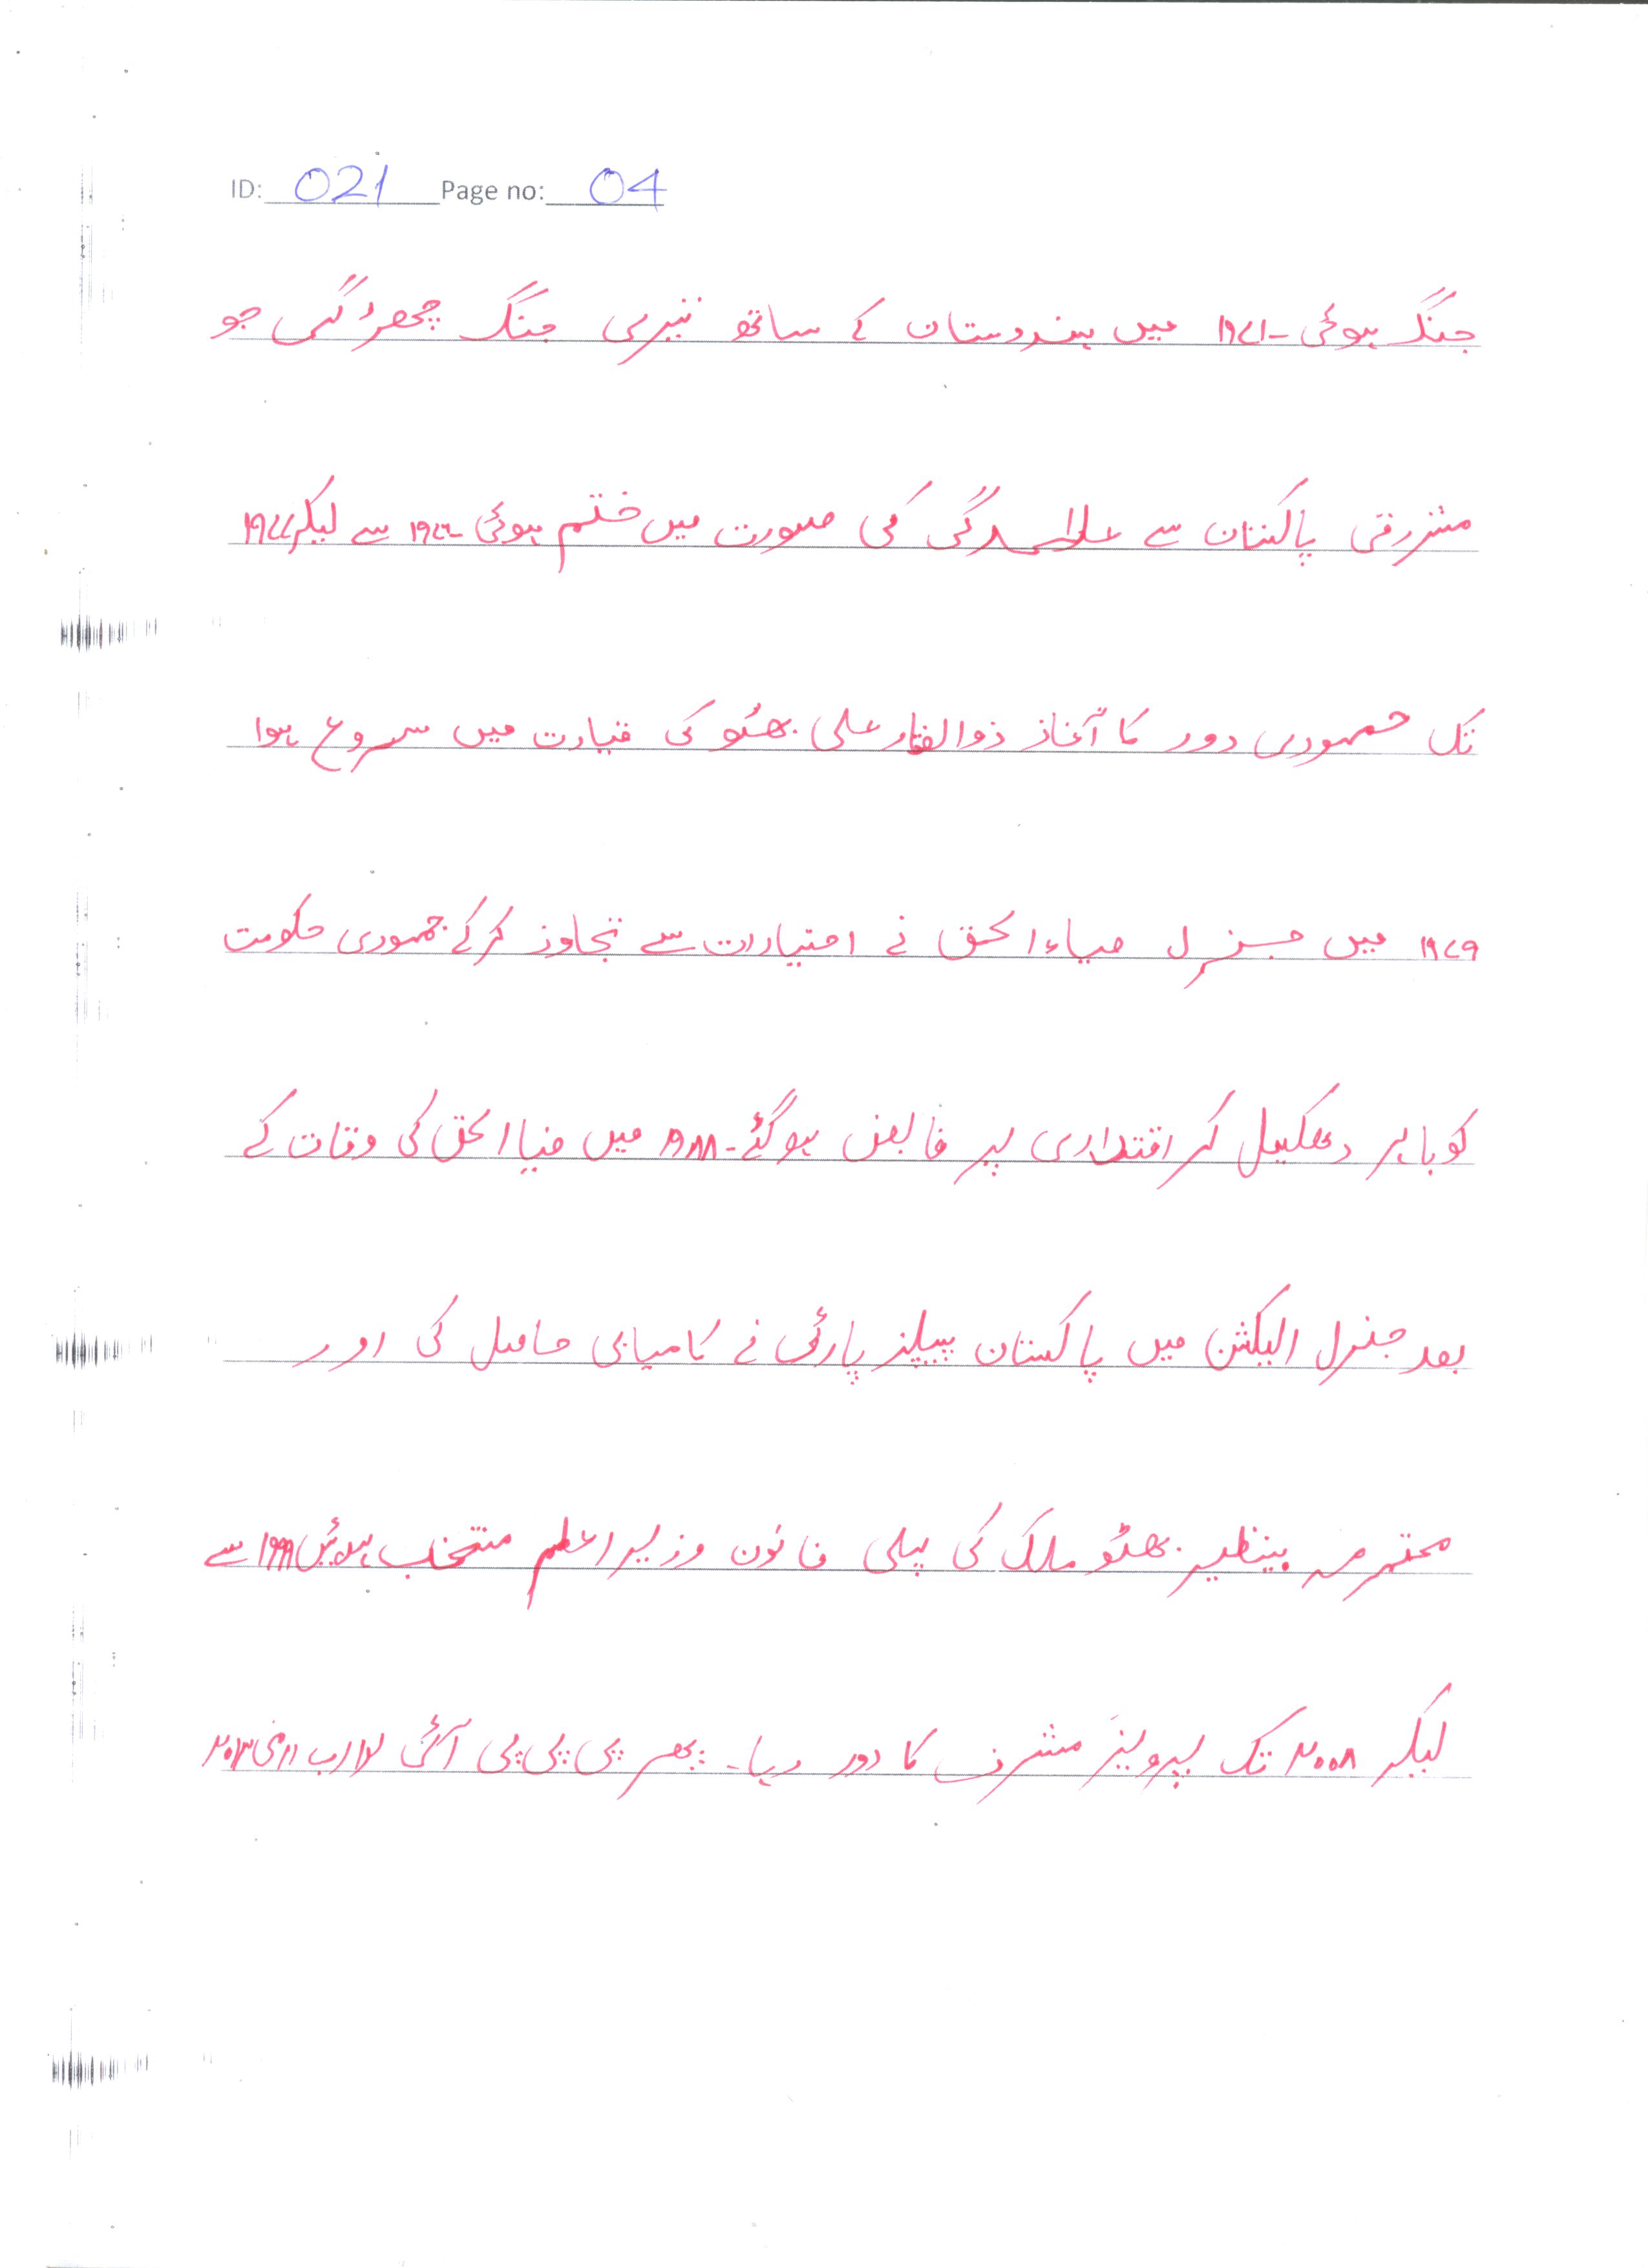 ID: 021 Page no: 04
جنگ ہوئی۔ ۱۹۷۱ میں ہندوستان کے ساتھ تیسری جنگ چھڑ گئی جو
مشرقی پاکستان سے علاحدگی کی صورت میں ختم ہوئی۔ ۱۹۷۲ سے لیکر ۱۹۷۷
تک جمہوری دور کا آغاز ذوالفقار علی بھٹو کی قیادت میں شروع ہوا
۱۹۷۹ میں جنرل ضیاء الحق نے اختیارات سے تجاوز کرکے جمہوری حکومت
کو باہر دھکیل کر اقتداری پر قابض ہوگئے۔ ۱۹۸۸ میں ضیا الحق کی وفات کے
بعد جنرل الیکشن میں پاکستان پیپلز پارٹی نے کامیابی حاصل کی اور
محترمہ بینظیر بھٹو ملک کی پہلی خاتون وزیر اعظم منتخب ہوئیں ۱۹۹۹ سے
لیکر ۲۰۰۸ تک پرویز مشرف کا دور رہا۔ پھر پی پی پی آئی اور اب ۱۱ مئی ۲۰۱۳